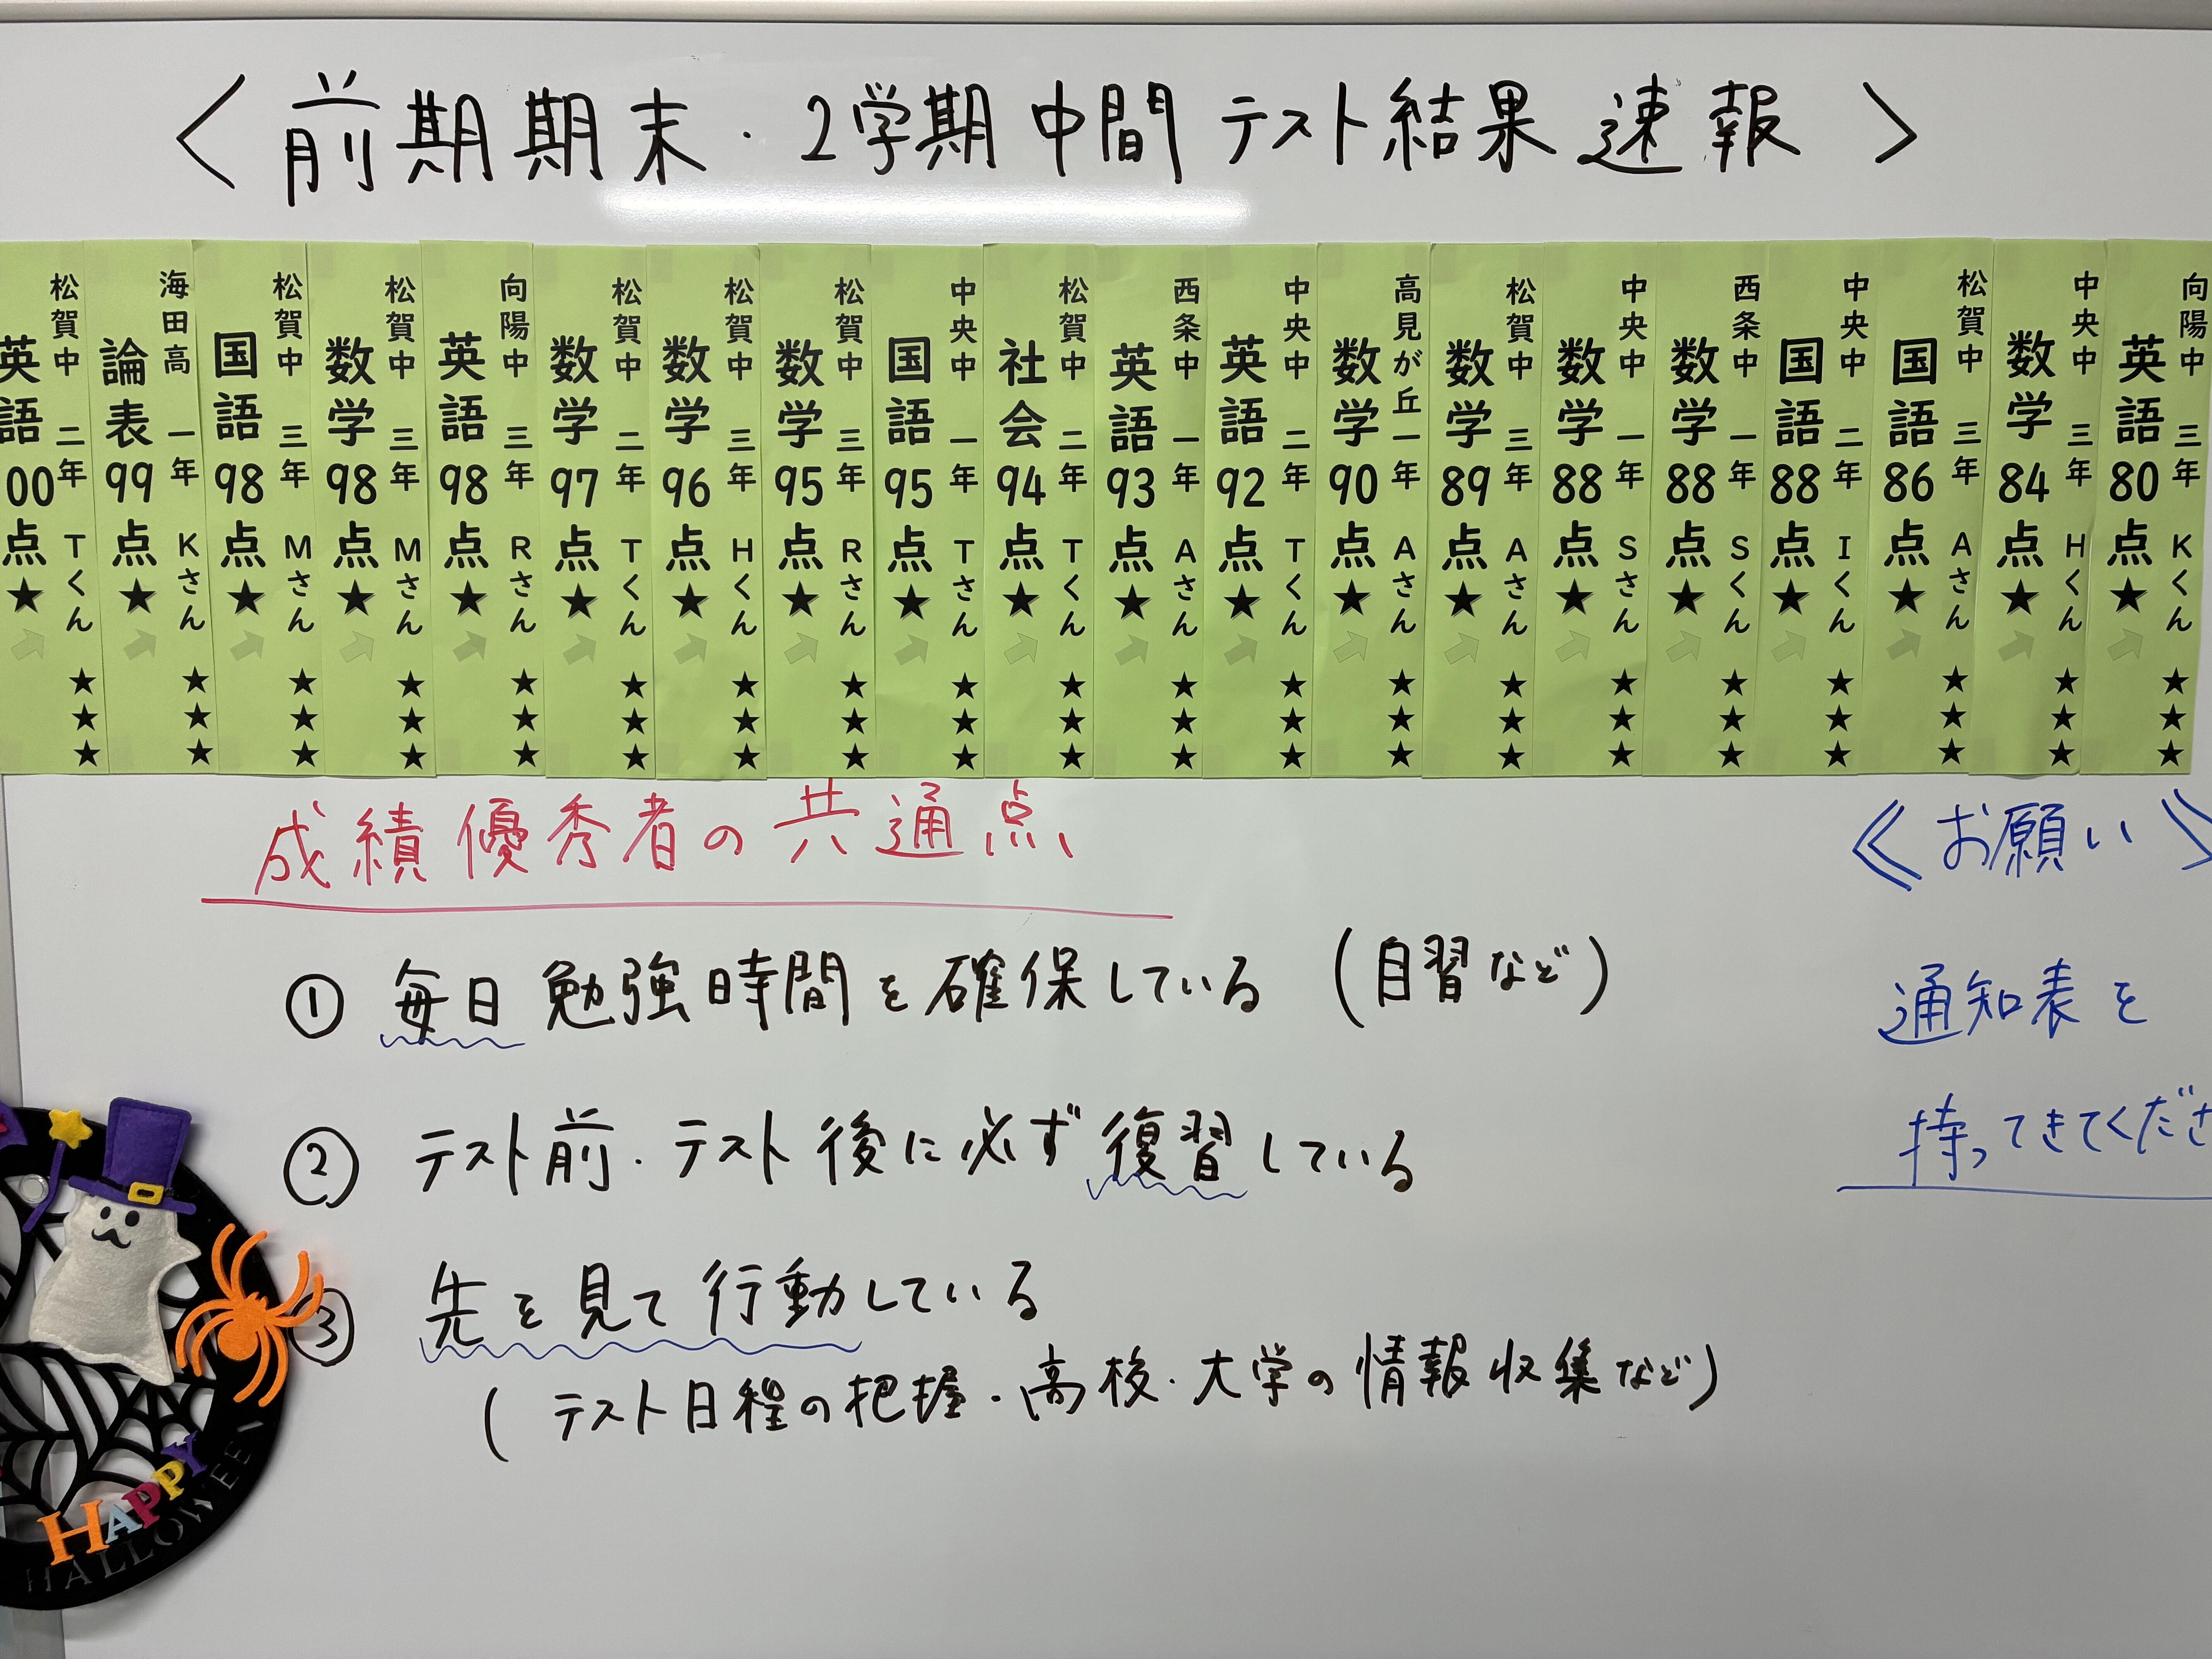 〈前期期末・2学期中間テスト結果速報〉
松賀中 二年 Tくん ★★★
英語 00点★
海田高 一年 Kさん ★★★
論表 99点★
松賀中 三年 Mさん ★★★
国語 98点★
松賀中 三年 Mさん ★★★
数学 98点★
向陽中 三年 Rさん ★★★
英語 98点★
松賀中 二年 Tくん ★★★
数学 97点★
松賀中 三年 Hくん ★★★
数学 96点★
松賀中 三年 Rさん ★★★
数学 95点★
中央中 一年 Tさん ★★★
国語 95点★
松賀中 二年 Tくん ★★★
社会 94点★
西条中 一年 Aさん ★★★
英語 93点★
中央中 二年 Tくん ★★★
英語 92点★
高見が丘 一年 Aさん ★★★
数学 90点★
松賀中 三年 Aさん ★★★
数学 89点★
中央中 一年 Sさん ★★★
数学 88点★
西条中 一年 Sくん ★★★
数学 88点★
中央中 二年 Iくん ★★★
国語 88点★
松賀中 三年 Aさん ★★★
国語 86点★
中央中 三年 Hくん ★★★
数学 84点★
向陽中 三年 Kくん ★★★
英語 80点★
成績優秀者の共通点
① 毎日勉強時間を確保している (自習など)
② テスト前・テスト後に必ず復習している
③ 先を見て行動している
(テスト日程の把握・高校・大学の情報収集など)
《お願い》
通知表を
持ってきてくださ
HAPPY
HALLOWEEN